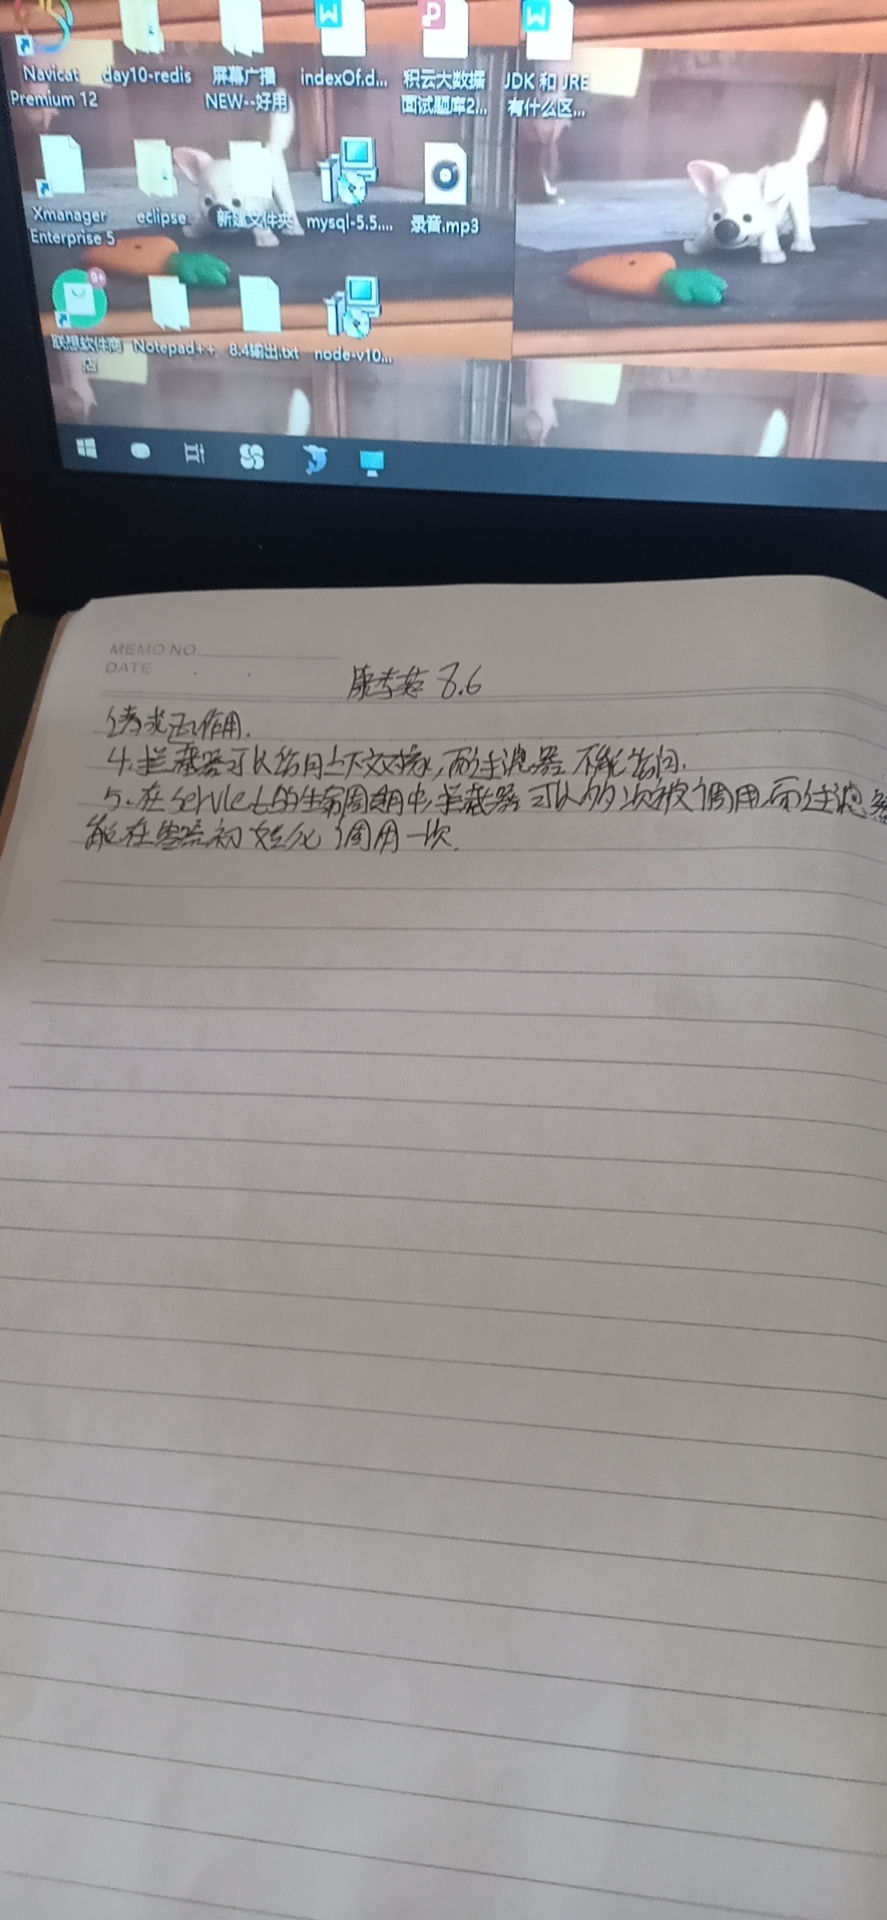 Navicat Premium 12
day10-redis
屏幕广播 NEW--好用
indexOf.d...
积云大数据面试题库2...
JDK 和 JRE 有什么区...
Xmanager Enterprise 5
eclipse
新建文件夹
mysql-5.5....
录音.mp3
联想软件商店
Notepad++
8.4输出.txt
node-v10...
MEMO NO.
DATE
康孝英 8.6
请求起作用.
4.拦截器可以访问上下文对象,而过滤器不能访问.
5.在servlet的生命周期中,拦截器可以多次被调用,而过滤器
能在容器初始化调用一次.